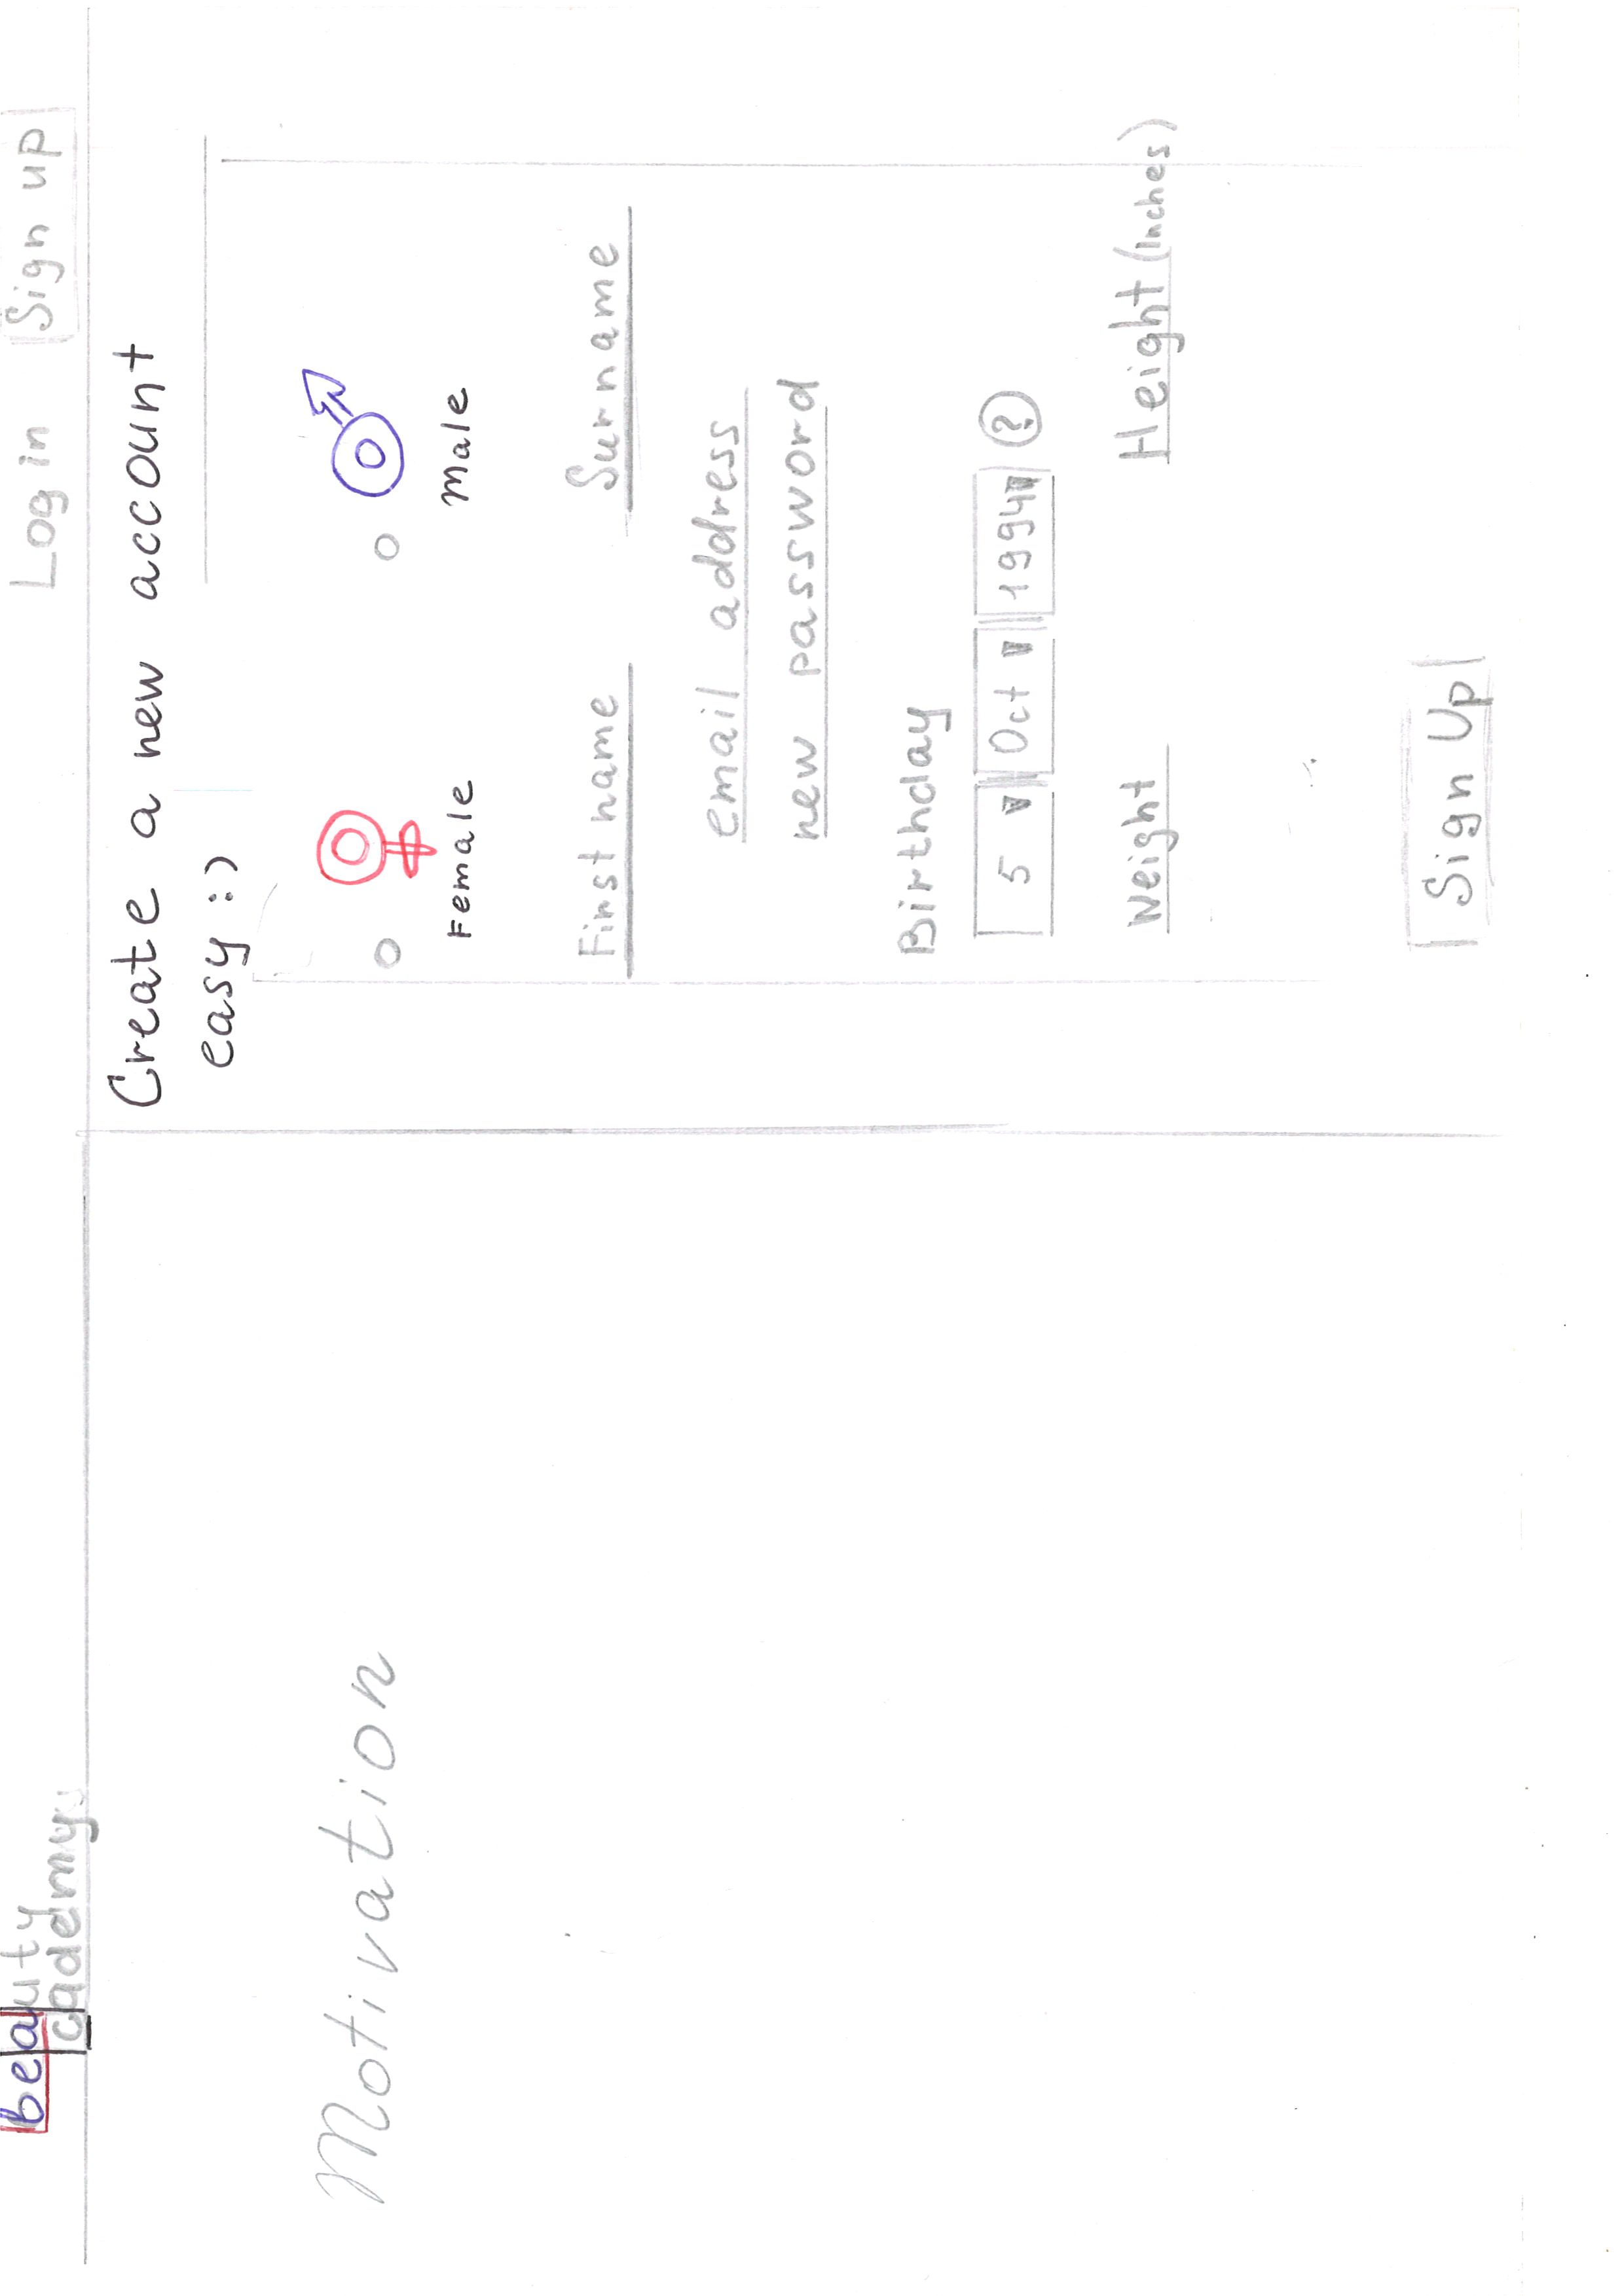 beauty
cademy
Log in Sign up
Create a new account
easy :)
Motivation
Female Male
First name Surname
email address
new password
Birthday
5 Oct 1994 ?
Weight Height (Inches)
Sign Up